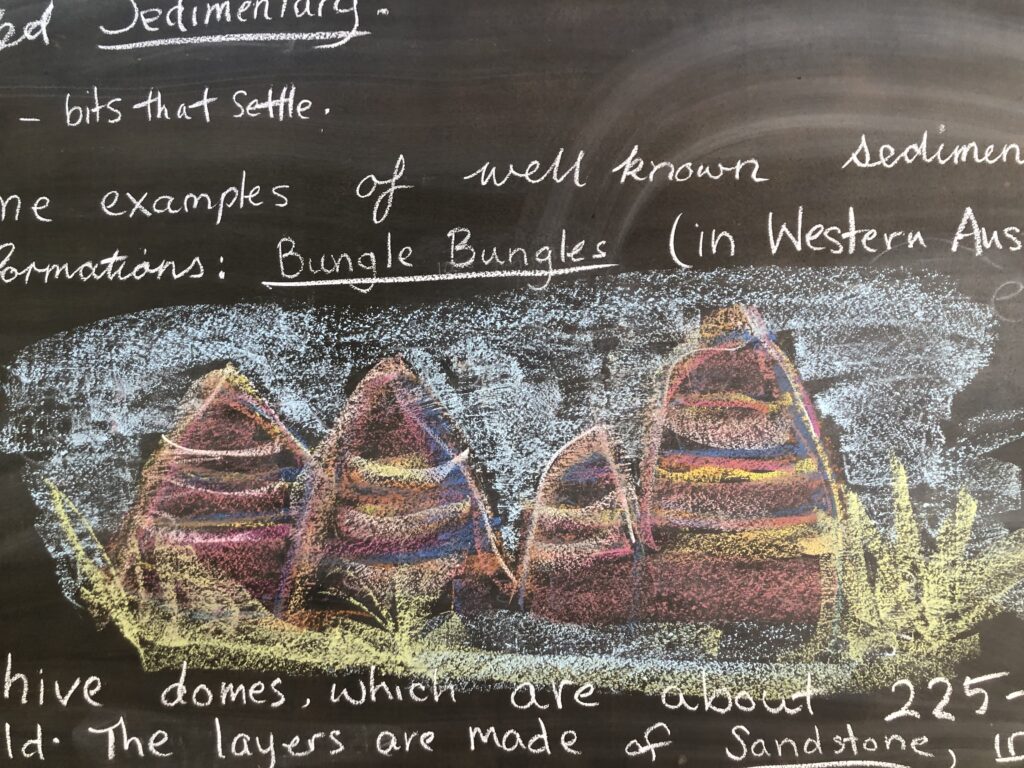 Sedimentary.
- bits that settle.
examples of well known sedimen
formations: Bungle Bungles (in Western Aus
hive domes, which are about 225-
ld. The layers are made of Sandstone,